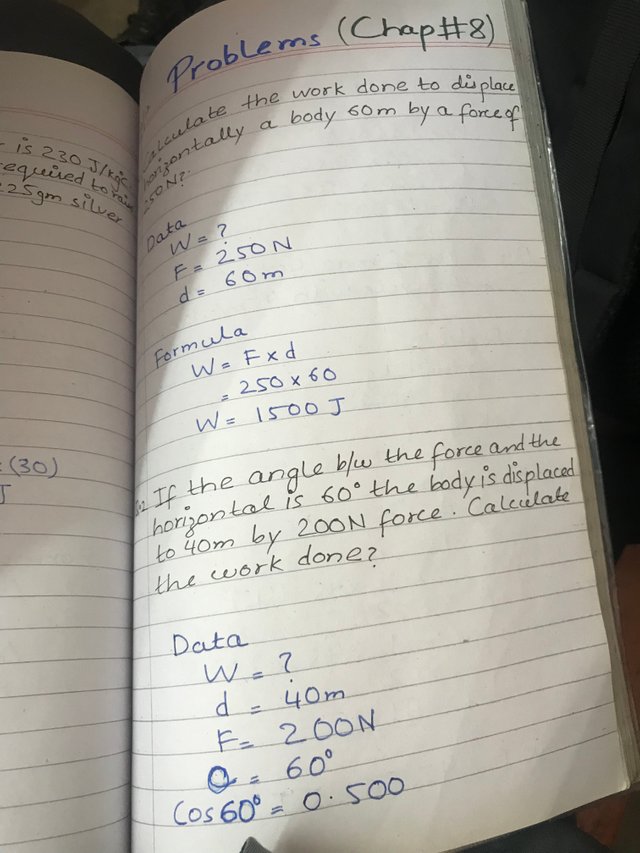 is 230 J/kgc
required to rai
225gm silver
(30)
J
Problems (Chap#8)
Calculate the work done to displace
horizontally a body 60m by a force of
250N?
Data
W = ?
F = 250N
d = 60m
Formula
W = F x d
= 250 x 60
W = 1500 J
If the angle b/w the force and the
horizontal is 60° the body is displaced
to 40m by 200N force. Calculate
the work done?
Data
W = ?
d = 40m
F = 200N
Q = 60°
Cos60° = 0.500